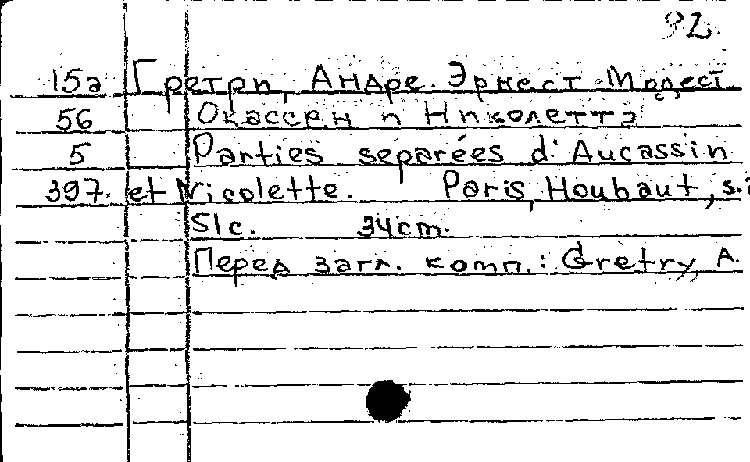 92
15а Гретри, Андре Эрнест Модест
56 Окассен и Николетта
5 Parties separées d'Aucassin
397. et Nicolette. Paris, Houbaut, s.i
51c. 34cm.
Перед загл. комп.: Gretry, A.